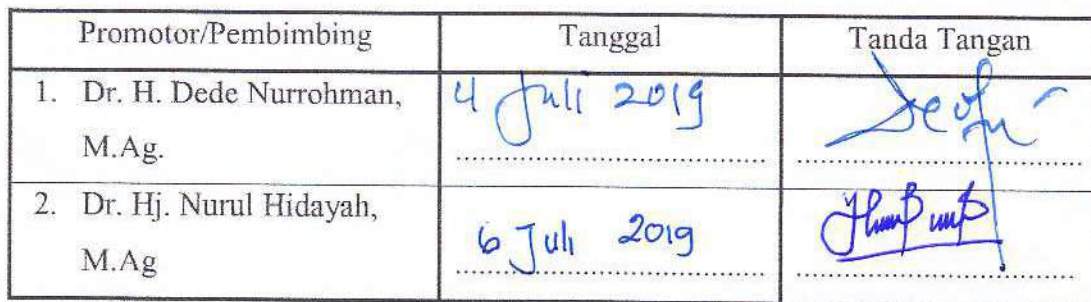 Promotor/Pembimbing Tanggal Tanda Tangan
1. Dr. H. Dede Nurrohman, 4 Juli 2019
M.Ag.
2. Dr. Hj. Nurul Hidayah, 6 Juli 2019
M.Ag